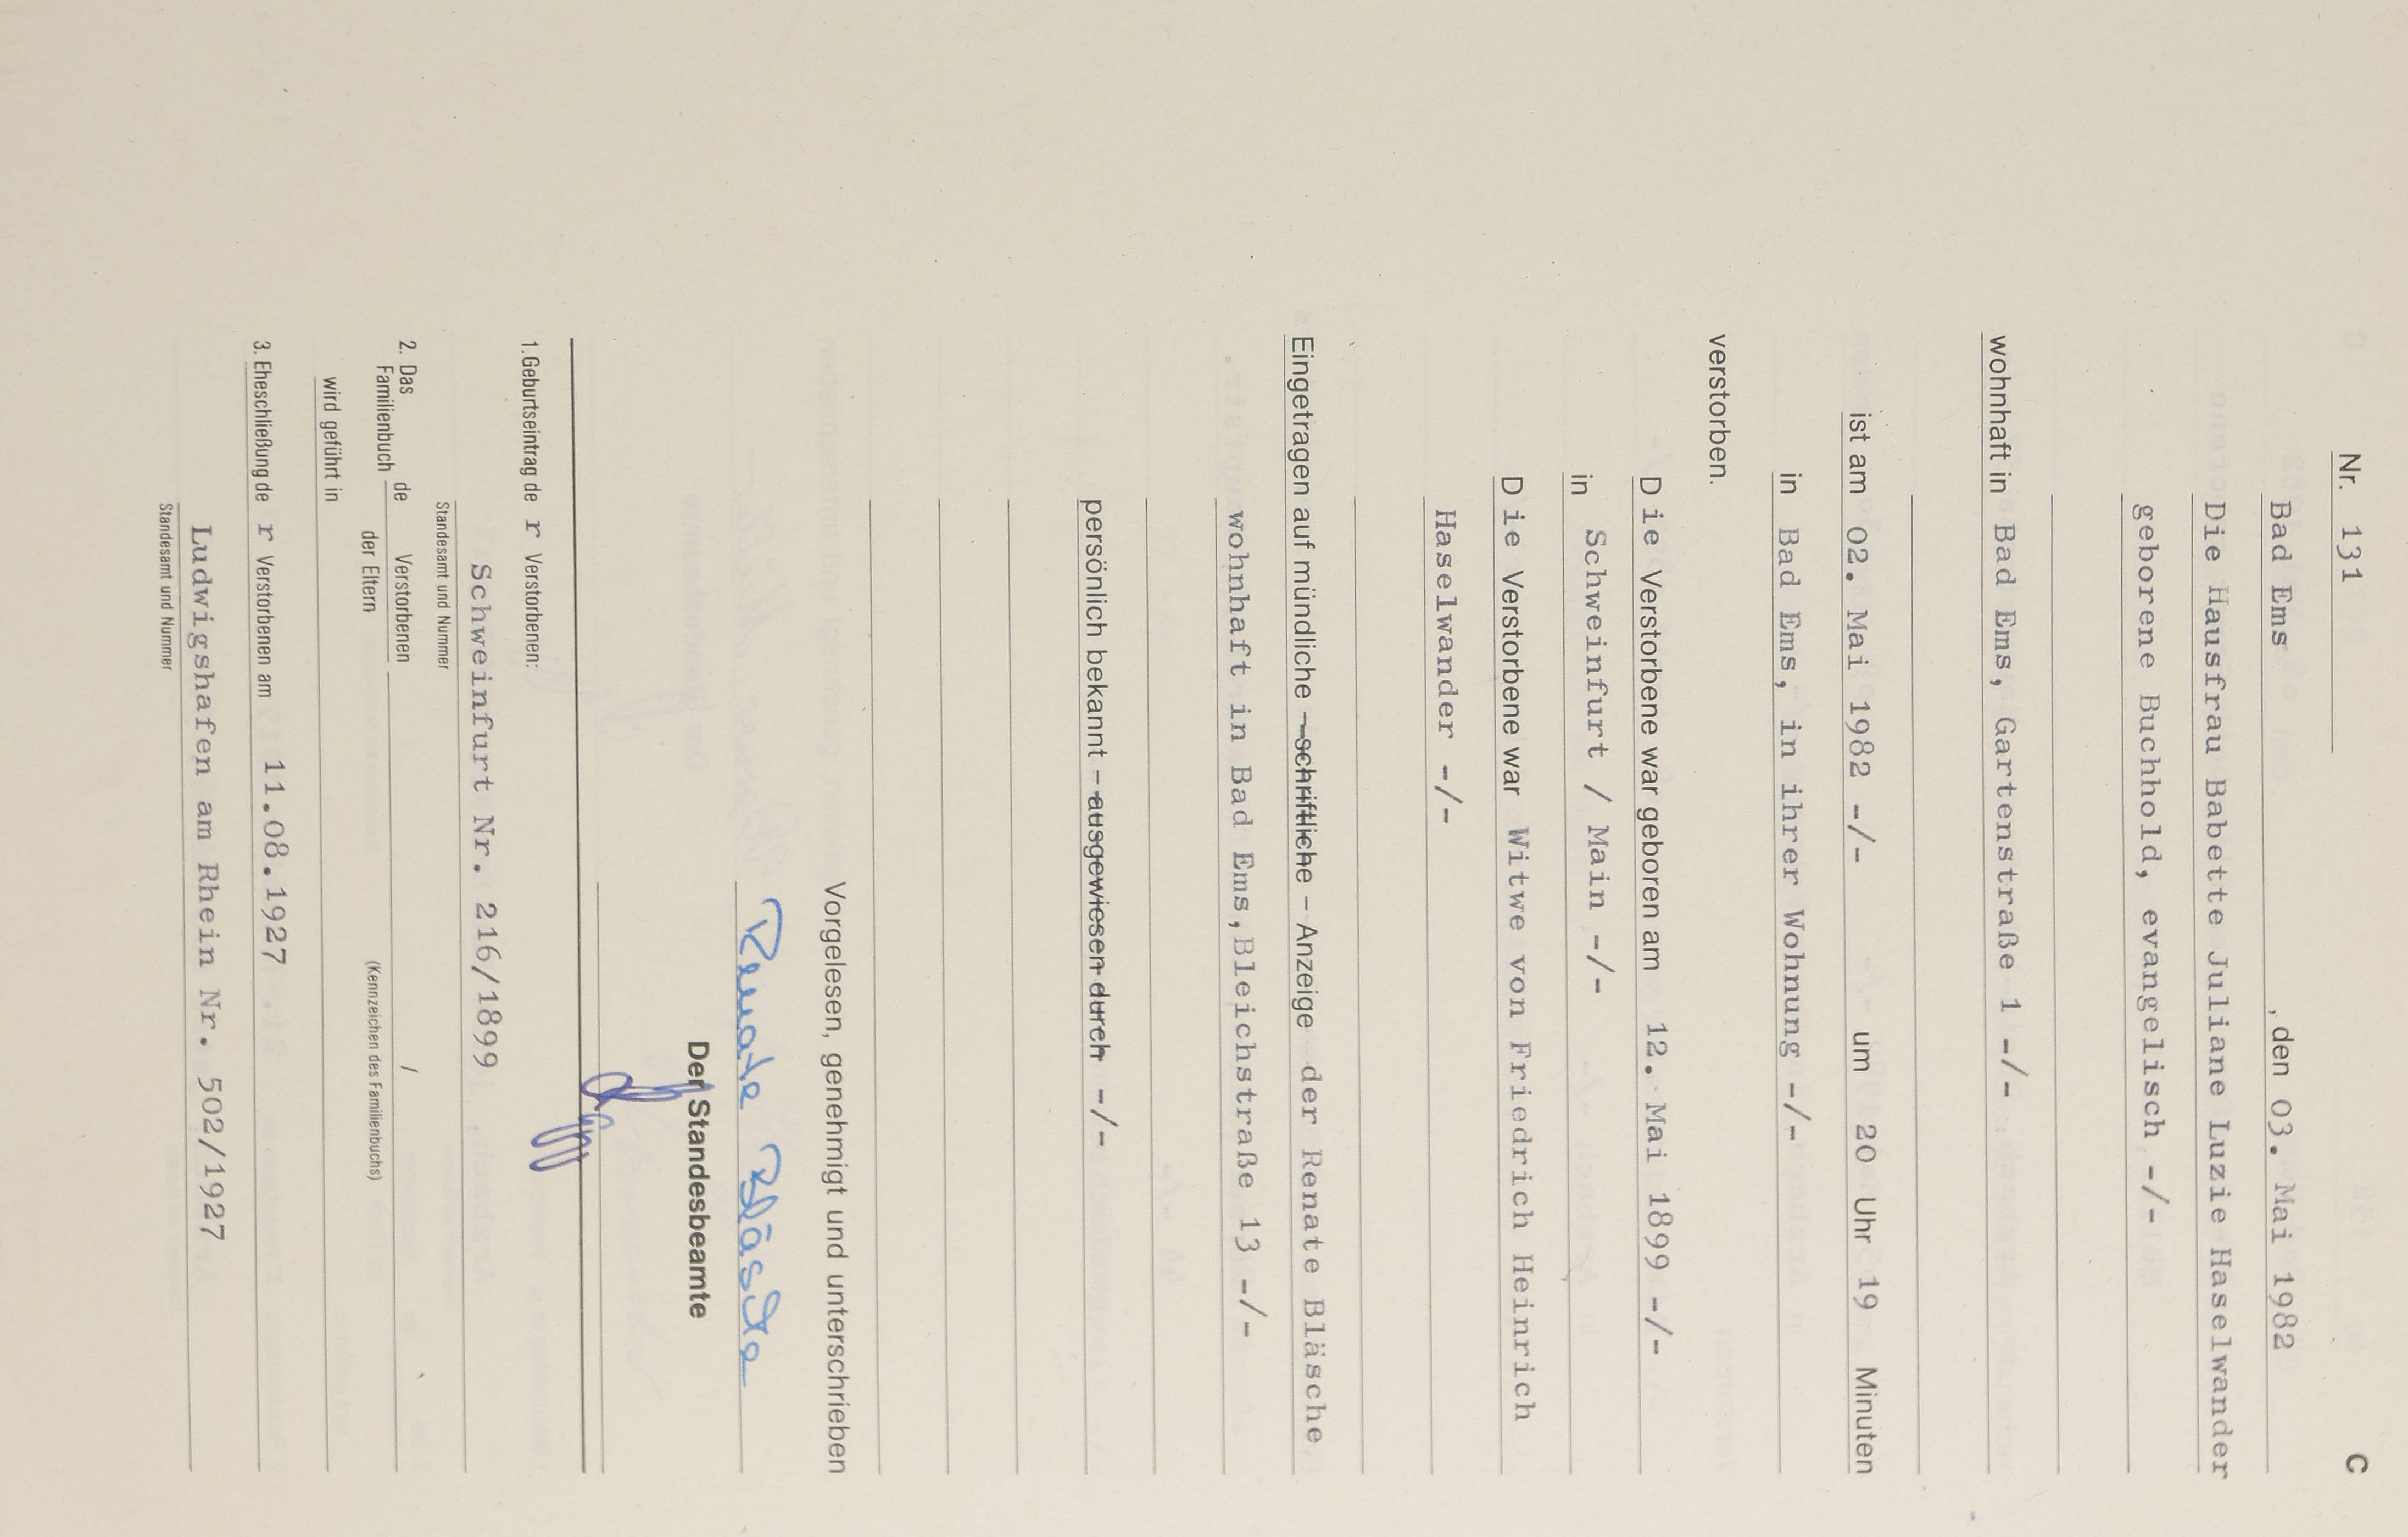 C
Nr. 131
Bad Ems, den 03. Mai 1982
Die Hausfrau Babette Juliane Luzie Haselwander
geborene Buchhold, evangelisch -/-
wohnhaft in Bad Ems, Gartenstraße 1 -/-
ist am 02. Mai 1982 -/- um 20 Uhr 19 Minuten
in Bad Ems, in ihrer Wohnung -/-
verstorben.
Die Verstorbene war geboren am 12. Mai 1899 -/-
in Schweinfurt / Main -/-
Die Verstorbene war Witwe von Friedrich Heinrich
Haselwander -/-
Eingetragen auf mündliche – schriftliche – Anzeige der Renate Bläsche
wohnhaft in Bad Ems, Bleichstraße 13 -/-
persönlich bekannt – ausgewiesen durch -/-
Vorgelesen, genehmigt und unterschrieben
Renate Bläsche
Der Standesbeamte
1. Geburtseintrag der Verstorbenen:
Schweinfurt Nr. 216/1899
Standesamt und Nummer
2. Das Familienbuch de Verstorbenen /
der Eltern (Kennzeichen des Familienbuchs)
wird geführt in
3. Eheschließung der Verstorbenen am 11.08.1927
Ludwigshafen am Rhein Nr. 502/1927
Standesamt und Nummer